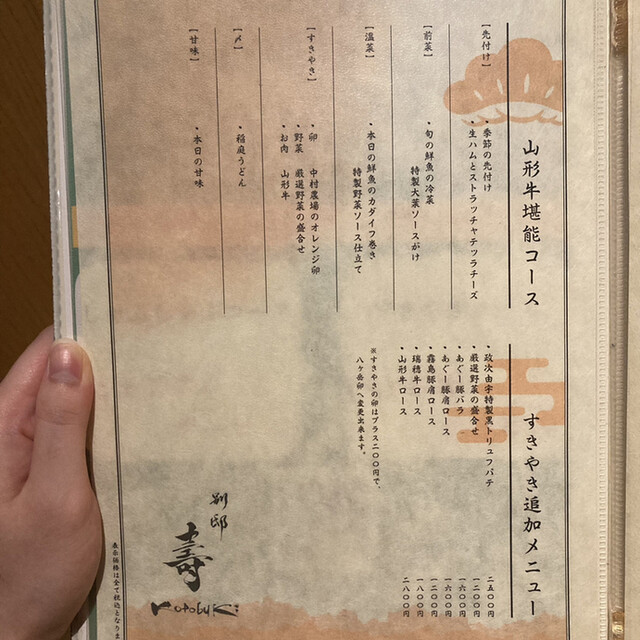 山形牛堪能コース
【先付け】
・季節の先付け
・生ハムとストラッチャテッラチーズ
【前菜】
・旬の鮮魚の冷菜
特製大葉ソースがけ
【温菜】
・本日の鮮魚のカダイフ巻き
特製野菜ソース仕立て
【すきやき】
・卵 中村農場のオレンジ卵
・野菜 厳選野菜の盛合せ
・お肉 山形牛
【〆】
・稲庭うどん
【甘味】
・本日の甘味
すきやき追加メニュー
・政次由宇特製黒トリュフパテ 二五〇〇円
・厳選野菜の盛合せ 一二〇〇円
・あぐー豚バラ 一六〇〇円
・あぐー豚肩ロース 一六〇〇円
・霧島豚肩ロース 一二〇〇円
・瑞穂牛ロース 一八〇〇円
・山形牛ロース 二八〇〇円
※すきやきの卵はプラス二〇〇円で、
八ヶ岳卵へ変更出来ます。
別邸
壽
Kotobuki
表示価格は全て税込となりま